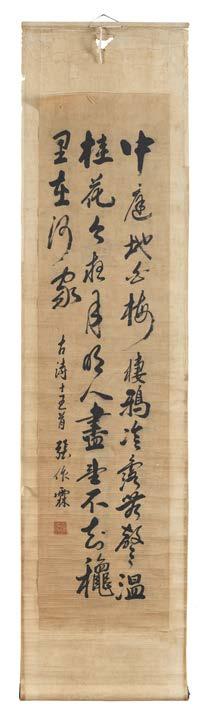 中庭地白樹棲鴉冷露無聲濕
桂花今夜月明人盡望不知穐
思在誰家
古 十五 張作霖